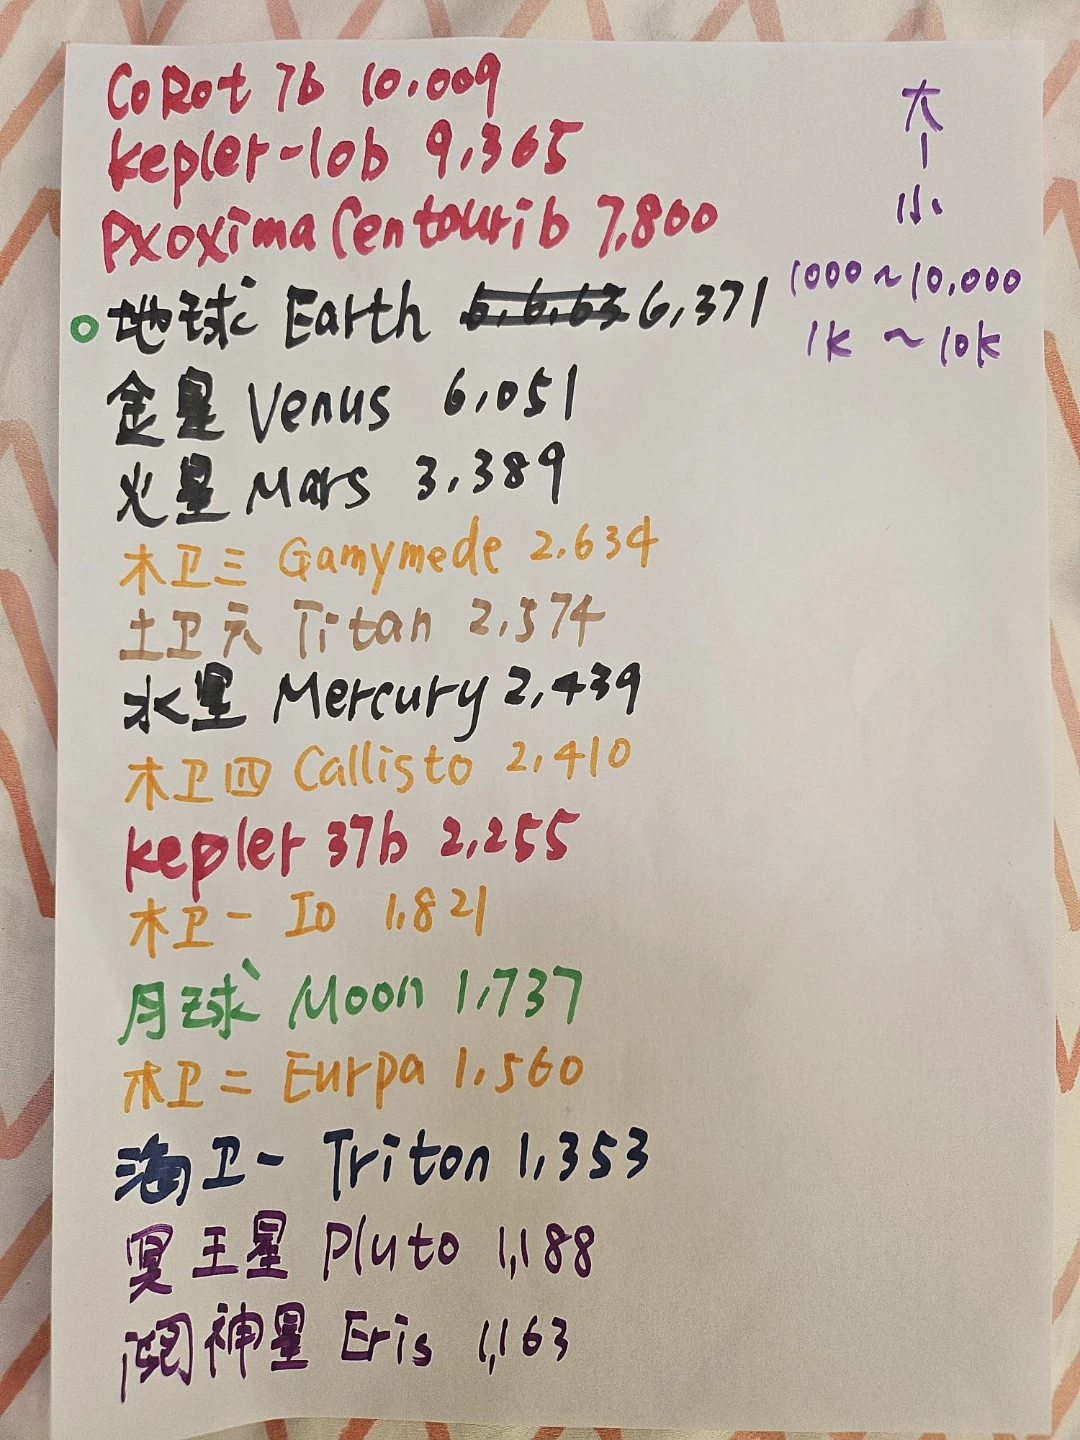 CoRot 7b 10,009
kepler-10b 9,365
Pxoxima Centouri b 7,800
地球 Earth 6,371
金星 Venus 6,051
火星 Mars 3,389
木卫三 Gamymede 2,634
土卫六 Titan 2,574
水星 Mercury 2,439
木卫四 Callisto 2,410
kepler 37b 2,255
木卫一 Io 1,821
月球 Moon 1,737
木卫二 Eurpa 1,560
海卫一 Triton 1,353
冥王星 Pluto 1,188
神星 Eris 1,163
大
|
小
1000~10,000
1k ~ 10k